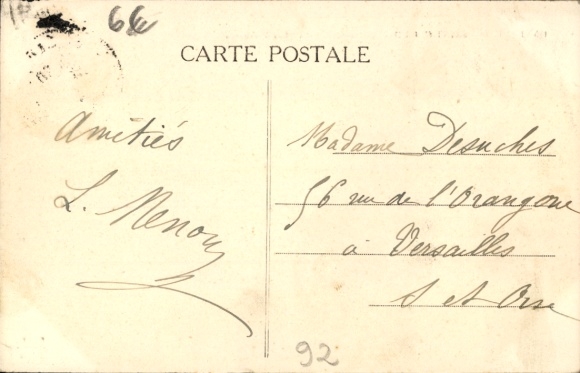 6€
CARTE POSTALE
Amitiés
L. Menou
Madame Desuches
56 rue de l'Orangerie
à Versailles
S et Oise
92